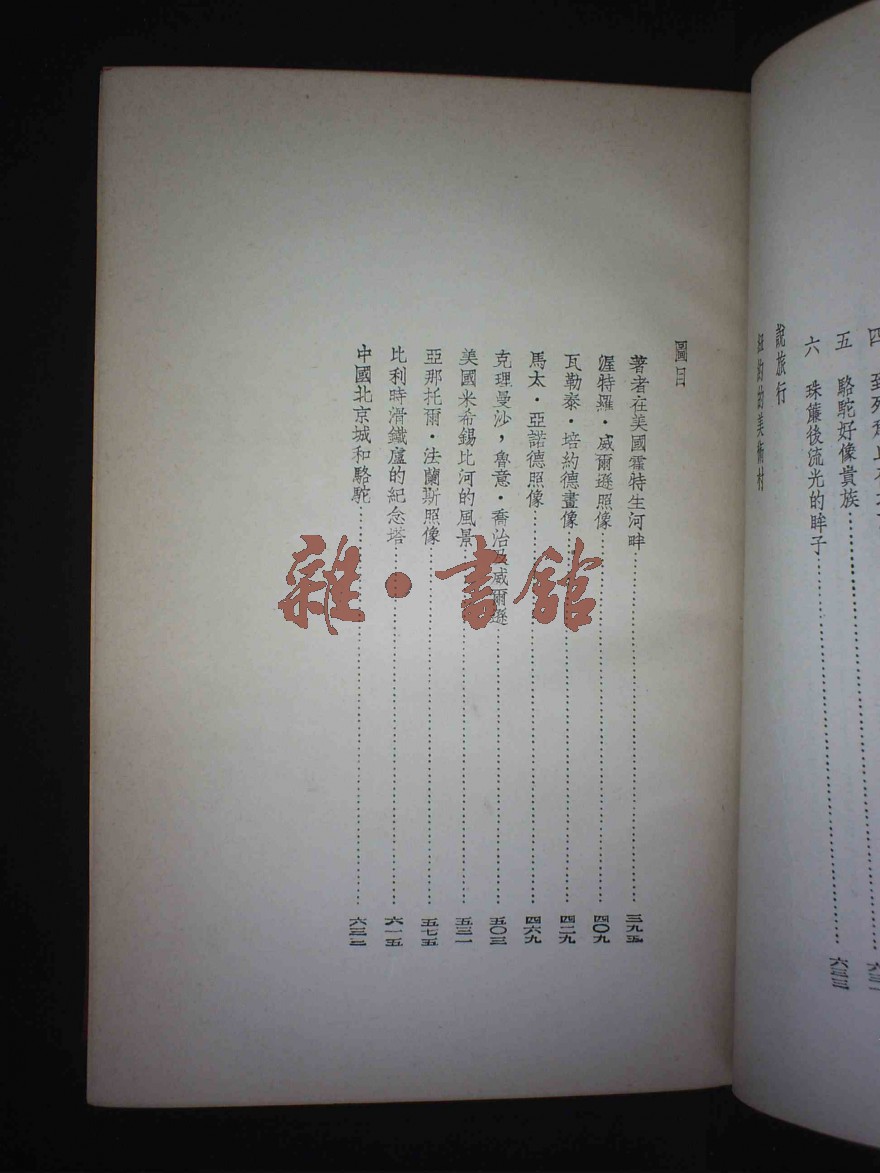 四
五 駱駝好像貴族……六三三
六 珠簾後流光的眸子……
說旅行
紐約的美術村
圖目
著者在美國霍特生河畔……三九五
渥特羅・威爾遜照像……四〇九
瓦勒泰・培約德畫像……四二九
馬太・亞諾德照像……四六九
克理曼沙，魯意・喬治及威爾遜……五〇三
美國米希錫比河的風景……五三一
亞那托爾・法蘭斯照像……五七五
比利時滑鐵盧的紀念塔……六一五
中國北京城和駱駝……六三二
雜・書館